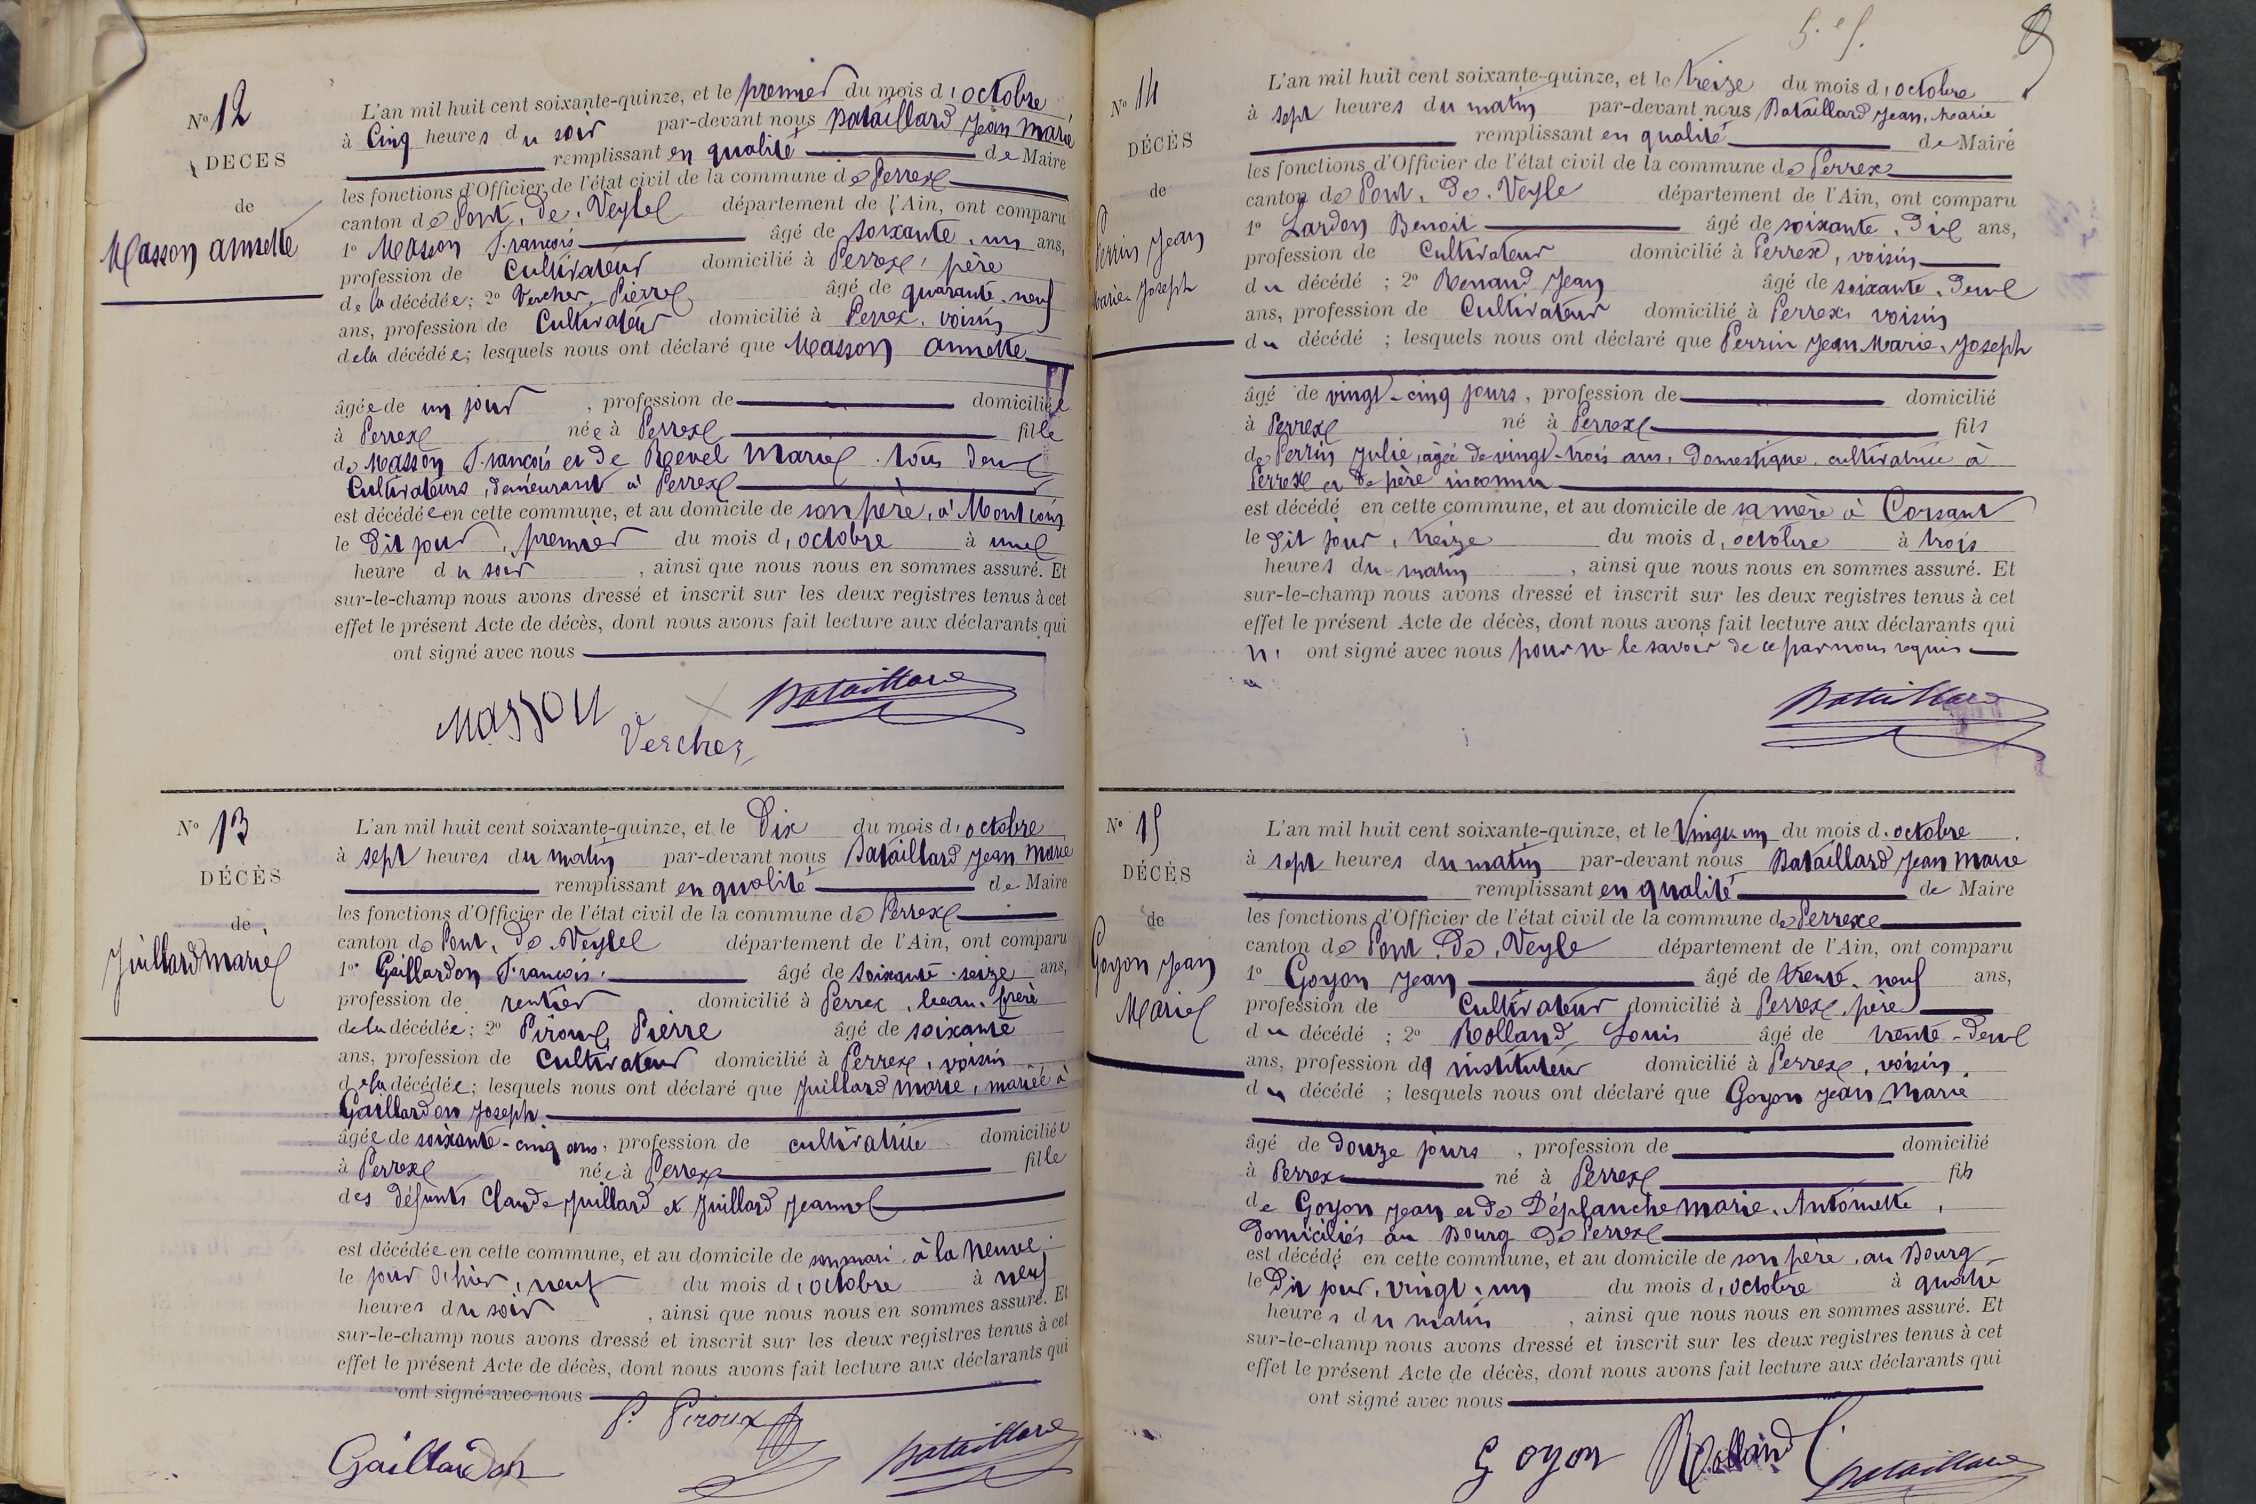 N° 12
DECES
de
Masson annette
L'an mil huit cent soixante-quinze, et le premier du mois d'octobre
à Cinq heures du soir par-devant nous Bataillard Jean Marie
remplissant en qualité de Maire
les fonctions d'Officier de l'état civil de la commune de Perrex
canton de Pont-De-Veyle département de l'Ain, ont comparu
1° Masson François âgé de soixante-un ans,
profession de Cultivateur domicilié à Perrex, père
de la décédée; 2° Vercher Pierre âgé de quarante-neuf
ans, profession de Cultivateur domicilié à Perrex, voisin
de la décédée; lesquels nous ont déclaré que Masson annette
âgée de un jour, profession de domiciliée
à Perrex née à Perrex fille
de Masson François et de Revel Marie tous deux
Cultivateurs, demeurant à Perrex
est décédée en cette commune, et au domicile de son père, à
le dit jour, premier du mois d'octobre à une
heure du soir, ainsi que nous nous en sommes assuré. Et
sur-le-champ nous avons dressé et inscrit sur les deux registres tenus à cet
effet le présent Acte de décès, dont nous avons fait lecture aux déclarants qui
ont signé avec nous
Masson Vercher Bataillard
N° 13
DÉCÈS
de
Juillard Marie
L'an mil huit cent soixante-quinze, et le Dix du mois d'octobre
à sept heures du matin par-devant nous Bataillard Jean Marie
remplissant en qualité de Maire
les fonctions d'Officier de l'état civil de la commune de Perrex
canton de Pont-De-Veyle département de l'Ain, ont comparu
1° Gaillardon François âgé de soixante-seize ans,
profession de rentier domicilié à Perrex, beau-frère
de la décédée; 2° Piroux Pierre âgé de soixante
ans, profession de Cultivateur domicilié à Perrex, voisin
de la décédée; lesquels nous ont déclaré que Juillard Marie, mariée à
Gaillardon Joseph
âgée de soixante-cinq ans, profession de cultivatrice domiciliée
à Perrex née à Perrex fille
des défunts Claude Juillard et Juillard Jeanne
est décédée en cette commune, et au domicile de son mari à la
le jour d'hier, neuf du mois d'octobre à neuf
heures du soir, ainsi que nous nous en sommes assuré. Et
sur-le-champ nous avons dressé et inscrit sur les deux registres tenus à cet
effet le présent Acte de décès, dont nous avons fait lecture aux déclarants qui
ont signé avec nous
P. Piroux
Gaillardon Bataillard
N° 14
DÉCÈS
de
Perrin Jean
Marie-Joseph
L'an mil huit cent soixante-quinze, et le treize du mois d'octobre
à sept heures du matin par-devant nous Bataillard Jean-Marie
remplissant en qualité de Maire
les fonctions d'Officier de l'état civil de la commune de Perrex
canton de Pont-De-Veyle département de l'Ain, ont comparu
1° Lardon Benoit âgé de soixante-dix ans,
profession de Cultivateur domicilié à Perrex, voisin
du décédé; 2° Renaud Jean âgé de soixante-deux
ans, profession de Cultivateur domicilié à Perrex, voisin
du décédé; lesquels nous ont déclaré que Perrin Jean Marie-Joseph
âgé de vingt-cinq jours, profession de domicilié
à Perrex né à Perrex fils
de Perrin Julie, âgée de vingt-trois ans, Domestique cultivatrice à
Perrex et de père inconnu
est décédé en cette commune, et au domicile de sa mère à Corsant
le dit jour, treize du mois d'octobre à trois
heures du matin, ainsi que nous nous en sommes assuré. Et
sur-le-champ nous avons dressé et inscrit sur les deux registres tenus à cet
effet le présent Acte de décès, dont nous avons fait lecture aux déclarants qui
n' ont signé avec nous pour ne le savoir de ce par nous requis
Bataillard
N° 15
DÉCÈS
de
Goyon Jean
Marie
L'an mil huit cent soixante-quinze, et le Vingt-un du mois d'octobre
à sept heures du matin par-devant nous Bataillard Jean Marie
remplissant en qualité de Maire
les fonctions d'Officier de l'état civil de la commune de Perrex
canton de Pont-De-Veyle département de l'Ain, ont comparu
1° Goyon Jean âgé de trente-neuf ans,
profession de Cultivateur domicilié à Perrex, père
du décédé; 2° Rolland Louis âgé de trente-deux
ans, profession d' instituteur domicilié à Perrex, voisin
du décédé; lesquels nous ont déclaré que Goyon Jean Marie
âgé de douze jours, profession de domicilié
à Perrex né à Perrex fils
de Goyon Jean et de Déplanche Marie-Antoinette,
Domiciliés au Bourg De Perrex
est décédé en cette commune, et au domicile de son père, au Bourg
le Dit jour, vingt-un du mois d'octobre à quatre
heures du matin, ainsi que nous nous en sommes assuré. Et
sur-le-champ nous avons dressé et inscrit sur les deux registres tenus à cet
effet le présent Acte de décès, dont nous avons fait lecture aux déclarants qui
ont signé avec nous
Goyon Rolland Bataillard